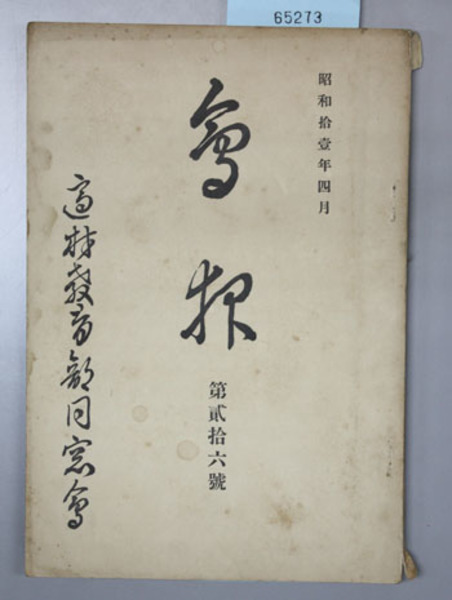 65273
昭和拾壹年四月
會報
第貳拾六號
適材教育部同窓會